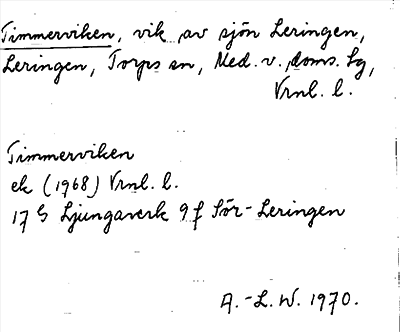 Timmerviken, vik av sjön Leringen,
Leringen, Torps sn, Med. v. doms. lg,
Vrnl. l.
Timmerviken
ek (1968) Vrnl. l.
17 G Ljungaverk 9 f Sör-Leringen
A.-L. W. 1970.